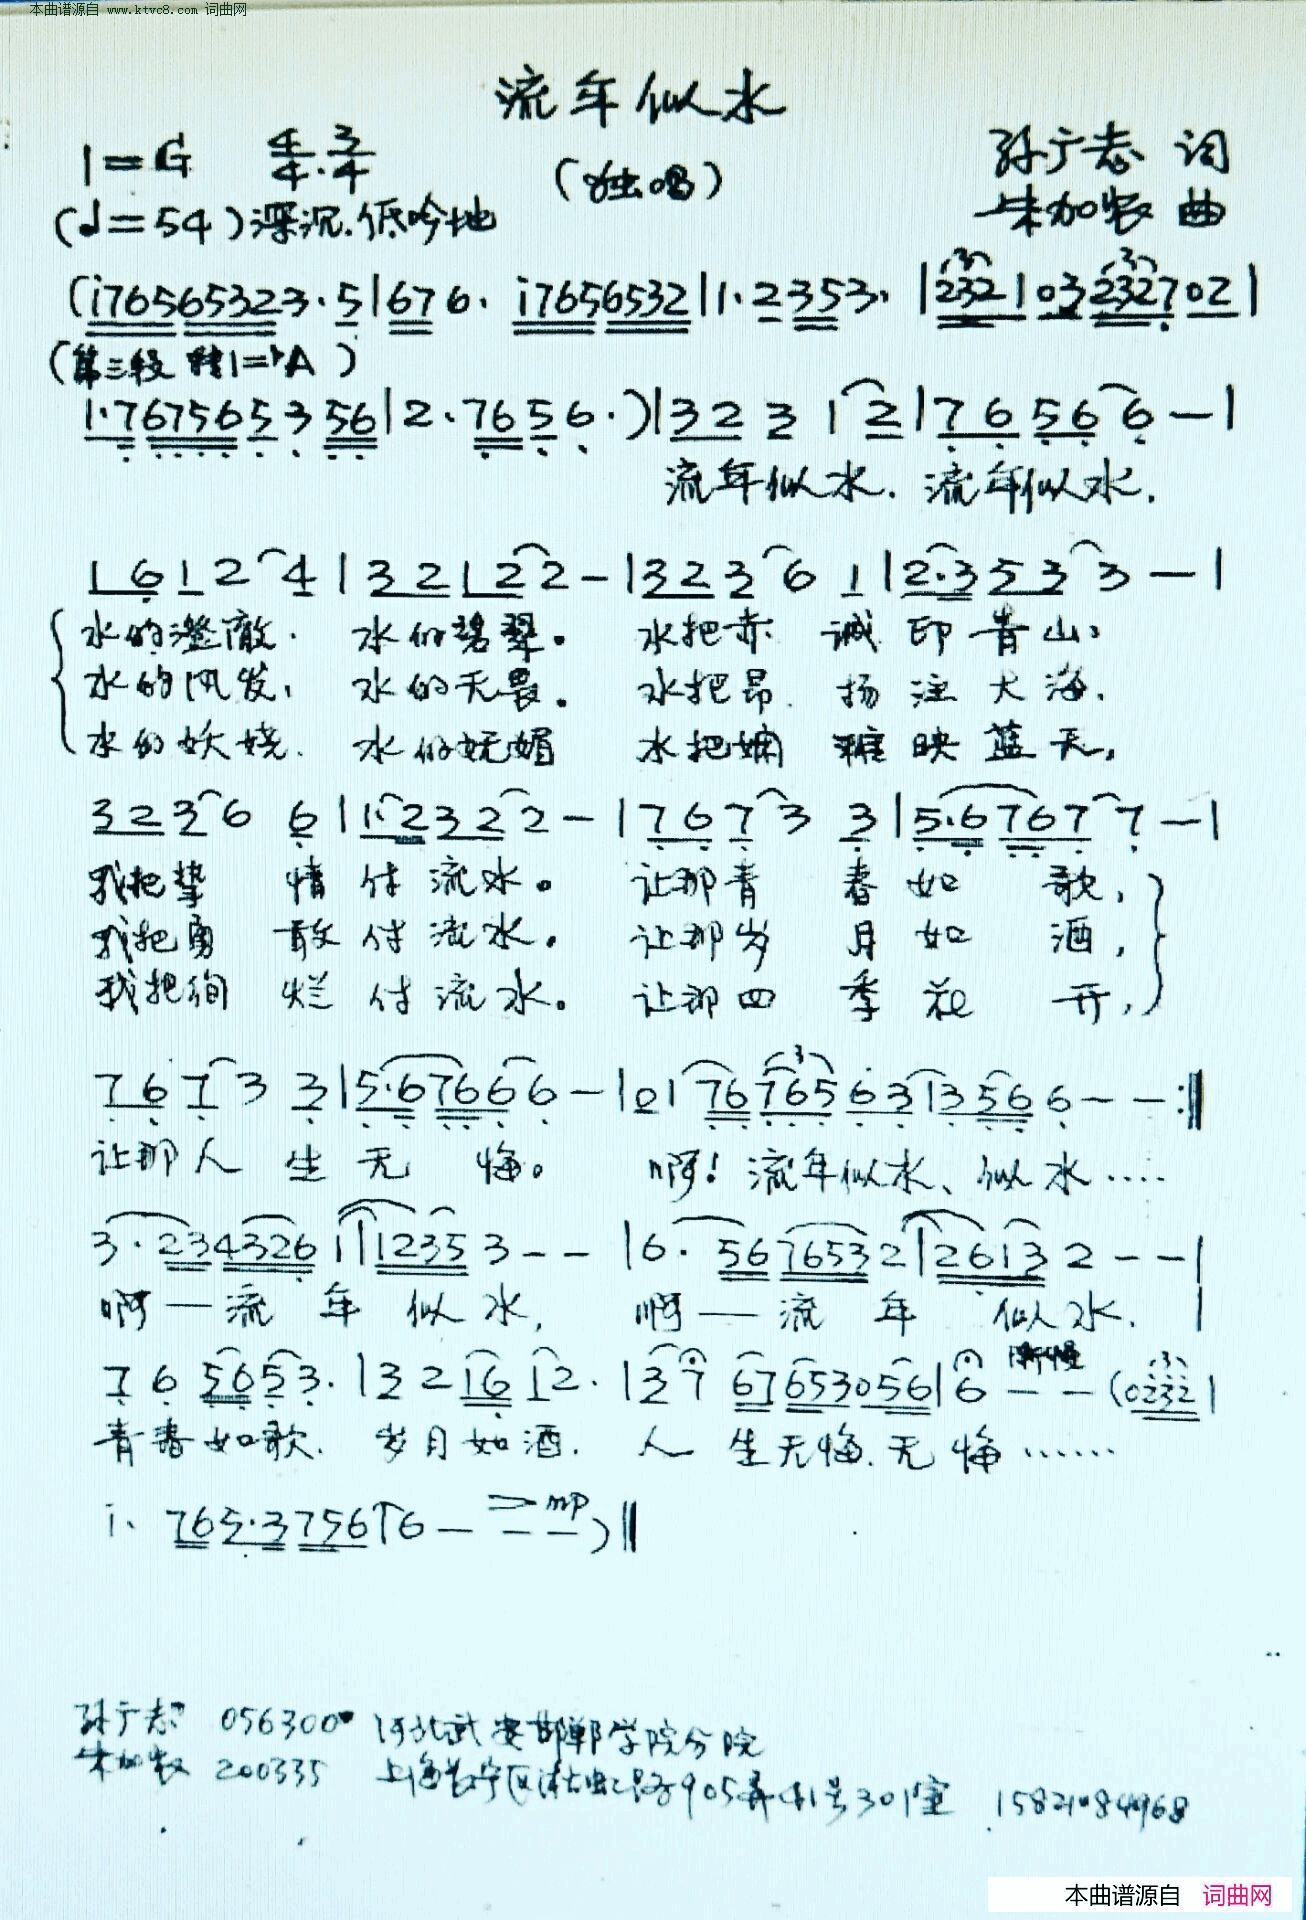 本曲谱源自 www.ktvc8.com 词曲网
流年似水
1=G 4/4 3/4
(独唱)
孙广志 词
朱加农 曲
(♩=54)深沉.低吟地
(i76565323.5|676. i7656532|1.2353. |2321 03232702|
(第三段 转1=♭A)
1.767565356|2.7656.)|323 12|76566—|
流年似水. 流年似水.
1612 4|321 22—|3236 1|2.3533—|
水的澄澈. 水的碧翠。 水把赤 诚 印青山、
水的风发, 水的无畏。 水把昂 扬 注大海.
水的妖娆. 水的妩媚 水把斓 映蓝天,
3236 6|1.2322—|7673 3|5.67677—|
我把挚 情付流水。 让那青 春如 歌,
我把勇 敢付流水。 让那岁 月如 酒,
我把绚 烂付流水。 让那四 季花 开,
7673 3|5.67666—|01 76765 63 13566——:‖
让那人 生无 悔。 啊! 流年似水、似水····
3.2343261|12353—— |6. 5676532|26132——|
啊—流 年 似 水, 啊—流 年 似水.
7 6 5653.|3216 12.|37 676530 56|6——(0232|
渐慢
青春如歌. 岁月如酒. 人 生无悔.无 悔……
i. 765.3756 6———)‖
mp
孙广志 056300 河北武安邯郸学院分院
朱加农 200335 上海长宁区 路905弄41号301室 15821084968
本曲谱源自 词曲网